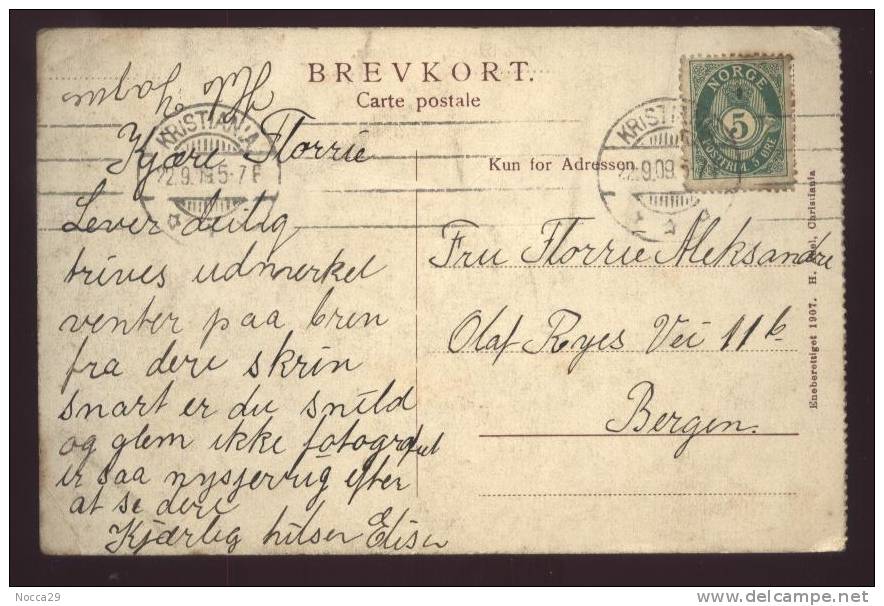 BREVKORT.
Carte postale
Kun for Adressen
NORGE
5
KRISTIANIA
22.9.09.5-7 E
KRISTIANIA
22.9.09.5-7
Kjære Florrie
Lever deilig
trives udmerket
venter paa brev
fra dere skriv
snart er du snild
og glem ikke fotografiet
er saa nysjerrig efter
at se dere
Kjærlig hilsen Elise
Fru Florrie Aleksandre
Olaf Ryes Vei 11b
Bergen.
Eneberettiget 1907. H. Christiania
Nocca29
www.delcampe.net